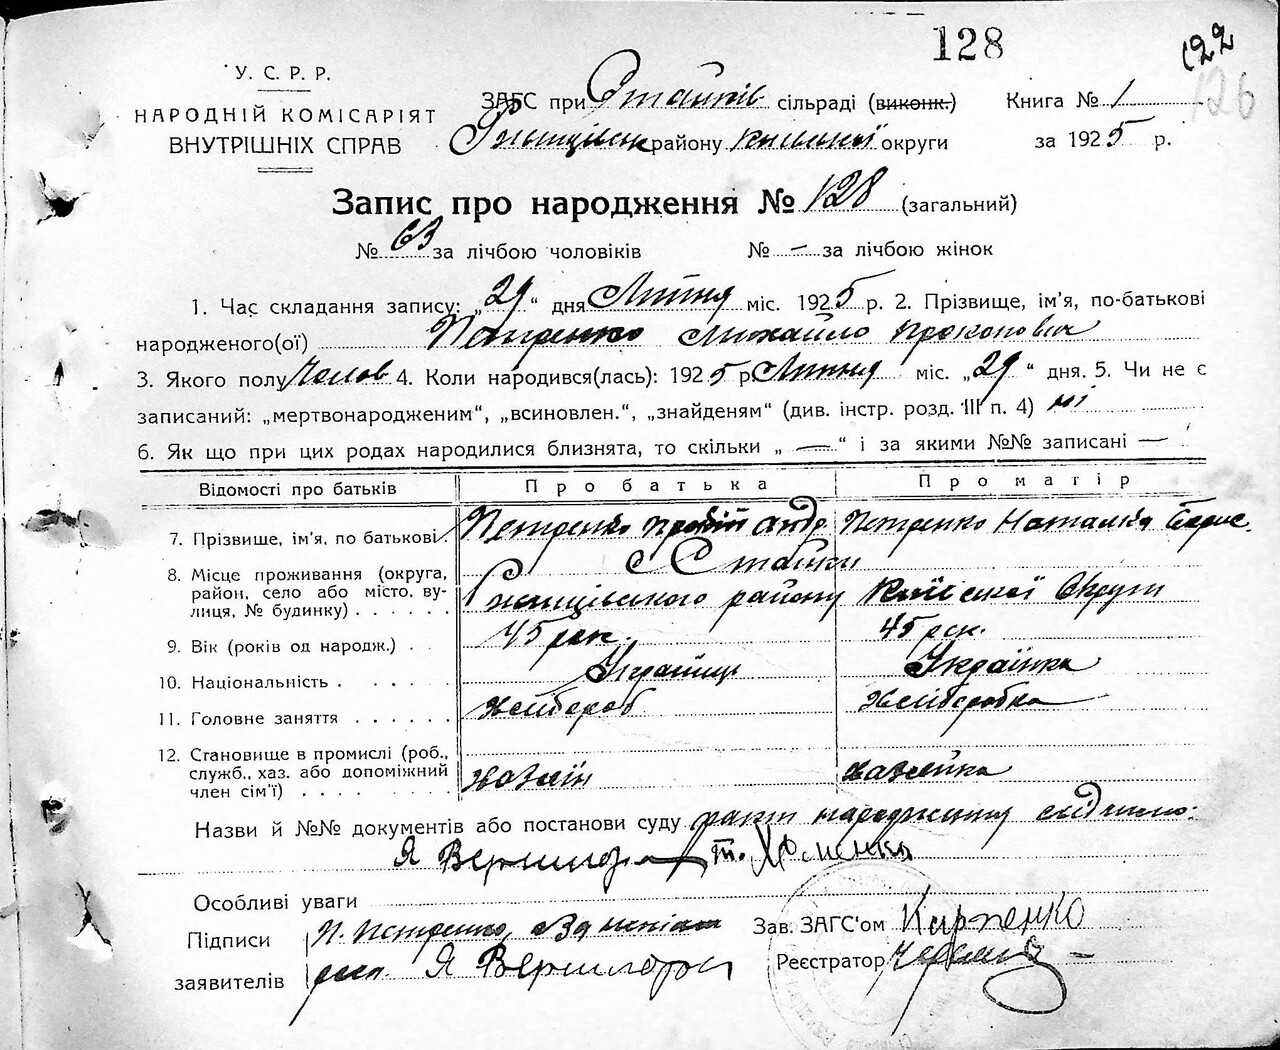 128
122
126
У. С. Р. Р.
НАРОДНІЙ КОМІСАРІЯТ
ВНУТРІШНІХ СПРАВ
ЗАГС при Стайків сільраді (виконк.)
Книга № 1
Ржищівськ району Київської округи
за 1925 р.
Запис про народження № 128 (загальний)
№ 63 за лічбою чоловіків № — за лічбою жінок
1. Час складання запису: „29“ дня Липня міс. 1925 р. 2. Прізвище, ім'я, по-батькові
народженого(ої) Петренко Михайло Прокопович
3. Якого полу Чолов 4. Коли народився(лась): 1925 р. Липня міс. „29“ дня. 5. Чи не є
записаний: „мертвонародженим“, „всиновлен.“, „знайденям“ (див. інстр. розд. III п. 4) ні
6. Як що при цих родах народилися близнята, то скільки „ — “ і за якими №№ записані —
Відомості про батьків Про батька Про матір
7. Прізвише, ім'я, по батькові Петренко Андр. Петренко Наталка Борис.
8. Місце проживання (округа, Стайки
район, село або місто, ву- Ржищівського району Київської Округи
лиця, № будинку)
9. Вік (років од народж.) 45 рок. 45 рок.
10. Національність Українц Українка
11. Головне заняття Хлібороб Хліборобка
12. Становище в промислі (роб.,
служб., хаз. або допоміжний Хазяїн Хазяйка
член сім'ї)
Назви й №№ документів або постанови суду факт народжину свідчимо:
Я Вернигора т. Хоменко
Особливі уваги
Підписи П. Петренко,
заявителів Я Вернигора
Зав. ЗАГС'ом Карпенко
Реєстратор